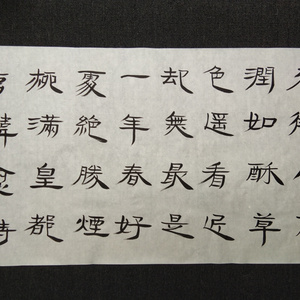 潤如酥草
色遙看近
却無最是
一年春好
處絕勝煙
柳滿皇都